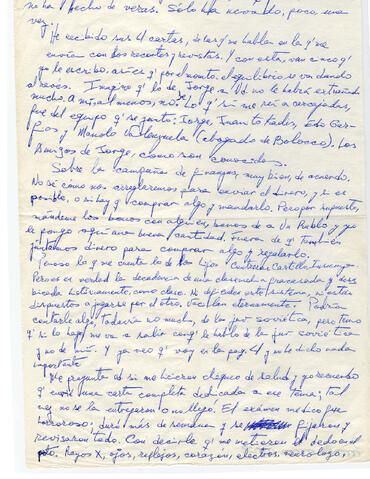 no ha hecho de veras. Sólo ha nevado, poco, una
vez.
He recibido sus 4 cartas, de las q' me hablan en la q' me
envían con los recortes y revistas. Y con esta, van cinco q'
yo le escribo, así es q' por el momto. el equilibrio se va dando
al revés. Imagino q' lo de Jorge a Ud. no le habrá extrañado
mucho. A mí, al menos, no. Lo q' sí me reí a carcajadas,
fue del equipo q' se juntó: Jorge, Juanito
y Manolo Valenzuela (abogado de Bolocco). Los
Amigos de Jorge, como son conocidos.
Sobre la campaña de finanzas, muy bien, de acuerdo.
No sé como nos arreglaremos para enviar el dinero, y si es
posible, o si hay q' comprar algo y mandarlo. Pero por supuesto,
mándeme los bonos con alguien, bonos de a Un Rublo y yo
le pongo aquí una nueva cantidad. Fuera de q' también
juntamos dinero para comprar algo y regalarlo.
lo que me cuenta lo de los hijos Contreras, Castillo,
Pero es en verdad la decadencia de una clase media fracasada y mal
ubicada históricamente, como clase. No defienden este sistema, ni están
dispuestos a jugarse por el otro, vacilan eternamente. Podría
contarle algo, todavía no mucho, de la juv. soviética, pero temo
q' si lo hago me va a salir conq' le hablo de la juv. soviética
y no de mí. Y ya veo q' voy en la pág. 4 y no le dicho nada
importante
Me pregunta Ud. si me hicieron chequeo de salud, y yo recuerdo
q' envié una carta completa dedicada a ese tema; tal
vez no se la entregaron o no llegó. El exámen médico fue
horroroso: duró más de 1 semana y se fijaron y
revisaron todo. Con decirle q' me metieron el dedo en el
poto, Rayos X, ojos, reflejos, corazón, electros, neurólogo,